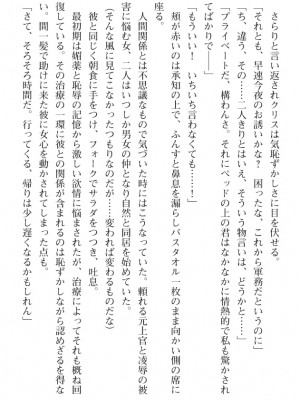 さらりと言い返されクリスは気恥ずかしさに目を伏せる。
「それとも、早速今夜のお誘いかな？　困ったな、これから軍務だというのに」
「ち、違う、その……二人きりとはいえ、そういう物言いは、どうかと……」
「プライベートだ、構わんさ。それにベッドの上の君はなかなかに情熱的で私も驚かされ
てばかりで――」
「もういい！　いちいち言わなくても……っ」
　頬が赤いのは承知の上で、ふんすと鼻息を漏らしバスタオル一枚のまま向かい側の席に
座る。
　人間関係とは不思議なもので気づいた時にはこうなっていた。頼れる元上官と凌辱の被
害に悩む女、二人はいつしか男女の仲となり自然と同居を始めていた。
（そんな風に見てこなかったつもりなのだが……変われば変わるものだな）
　彼と同じく朝食に手をつけ、フォークでサラダをつつき、吐息。
　最初期は媚薬と恥辱の記憶から激しい欲情に悩まされたが、治療によってそれも概ね回
復している。その治療の一環に彼との関係が含まれるのは恥ずかしながら認めざるを得な
い。間一髪で助けに来た彼に女心を動かされてしまった点も。
「さて、そろそろ時間だ。行ってくる、帰りは少し遅くなるかもしれん」